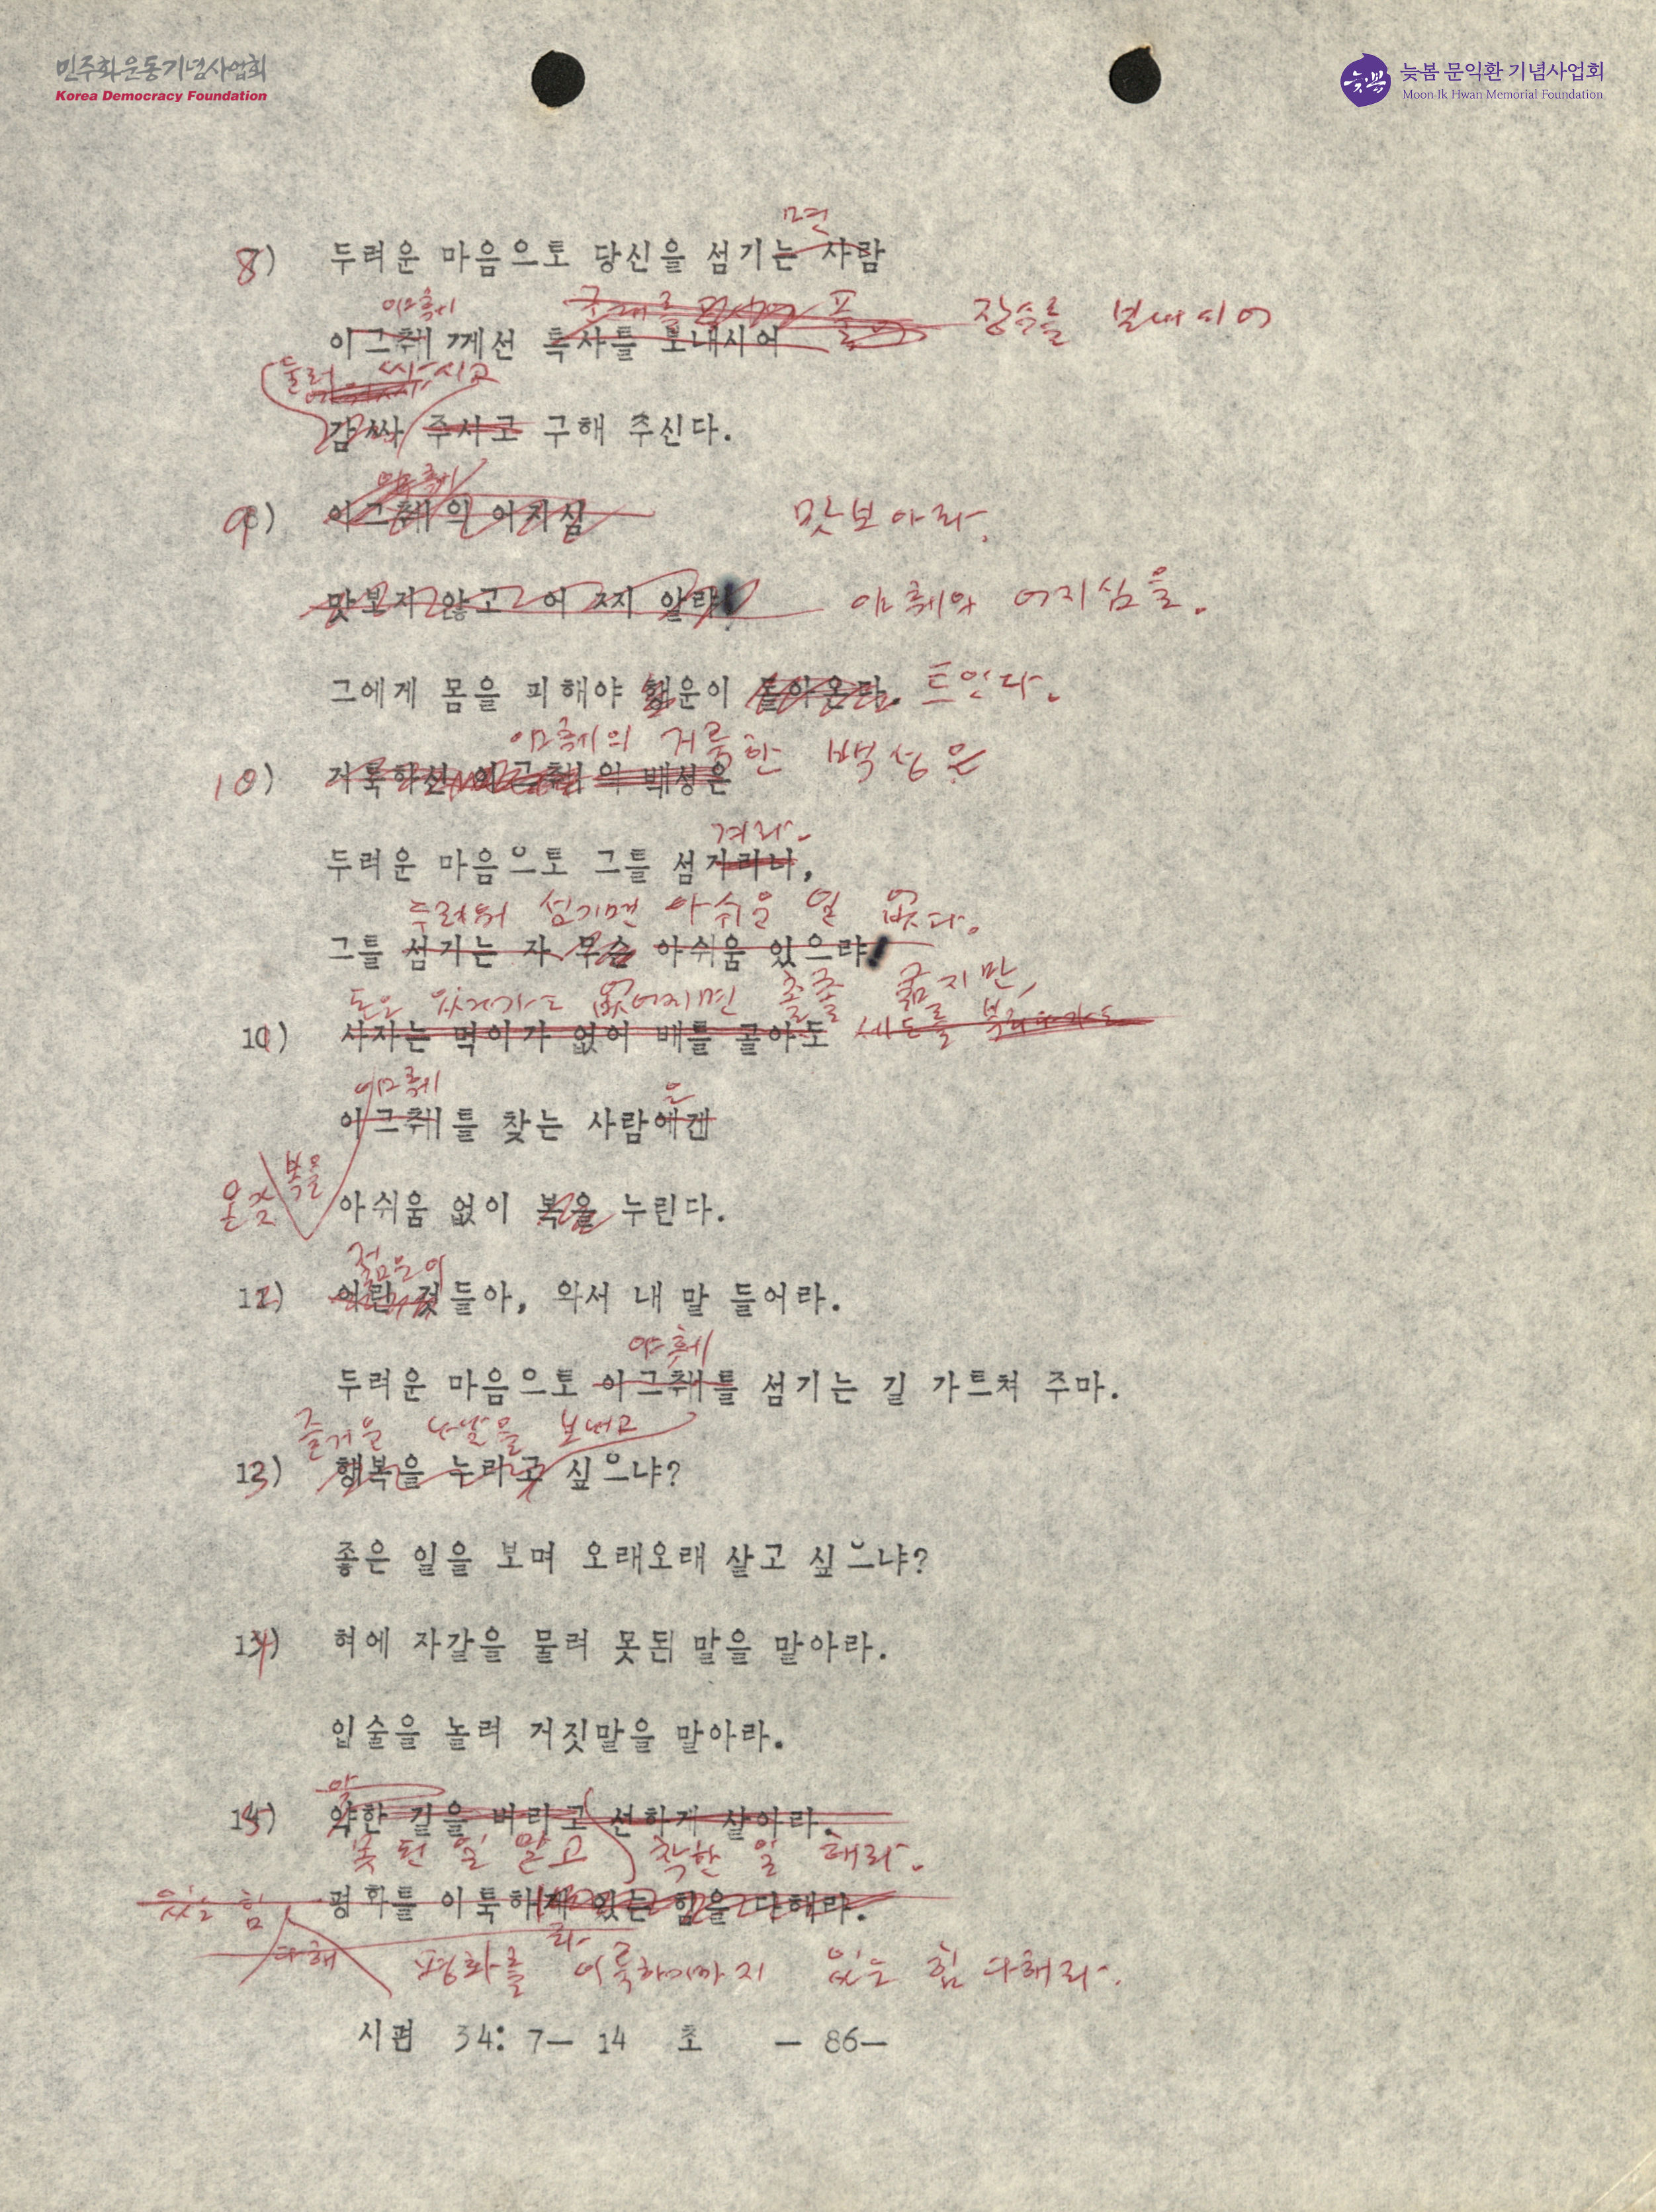 민주화운동기념사업회
Korea Democracy Foundation
늦봄 문익환 기념사업회
Moon Ik Hwan Memorial Foundation
면
8) 두려운 마음으로 당신을 섬기는 사람
야훼 장수를 보내시어
이그훼 께선 특사를 보내시어
둘러 싸시고
감싸 주시고 구해 주신다.
9) 이그훼의 어지심 맛보아라,
맛보지 않고 어찌 알랴! 야훼의 어지심을.
그에게 몸을 피해야 행운이 돌아온다. 트인다.
야훼의 거룩한 백성은
10) 거룩하신 이그훼의 백성은
겨라.
두려운 마음으로 그를 섬기리니,
두려워 섬기면 아쉬운 일 없다.
그를 섬기는 자 무슨 아쉬움 있으랴!
돈은 있다가도 없어지면 쫄쫄 굶지만,
11) 사자는 먹이가 없어 배를 골아도
야훼 은
이그훼를 찾는 사람에겐
온갖 복을
아쉬움 없이 복을 누린다.
젊은이
12) 어린 것들아, 와서 내 말 들어라.
야훼
두려운 마음으로 이그훼를 섬기는 길 가르쳐 주마.
즐거운 나날을 보내고
13) 행복을 누리고 싶으냐?
좋은 일을 보며 오래오래 살고 싶으냐?
14) 혀에 자갈을 물려 못된 말을 말아라.
입술을 놀려 거짓말을 말아라.
악
15) 약한 길을 버리고 선하게 살아라.
못된 일 말고 착한 일 해라.
있는 힘 평화를 이룩하게 있는 힘을 다해라.
다해 평화를 이룩하기까지 있는 힘 다해라.
시편 34: 7— 14 초 — 86—